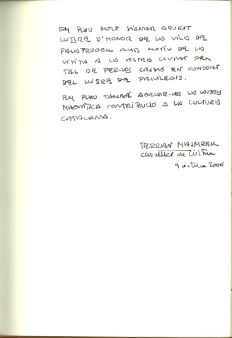 EM PLAU MOLT SIGNAR AQUEST
LLIBRE D'HONOR DE LA VILA DE
PALAFRUGELL AMB MOTIU DE LA
VISITA A LA VOSTRA CIUTAT PER
TAL DE FER-VOS EN
DEL LLIBRE DE PRIVILEGIS.
EM PLAU TAMBÉ AGRAIR-VOS LA VOSTRA
MAGNÍFICA CONTRIBUCIÓ A LA CULTURA
CATALANA.
FERRAN MASCARELL
conseller de Cultura
9 octubre 2006